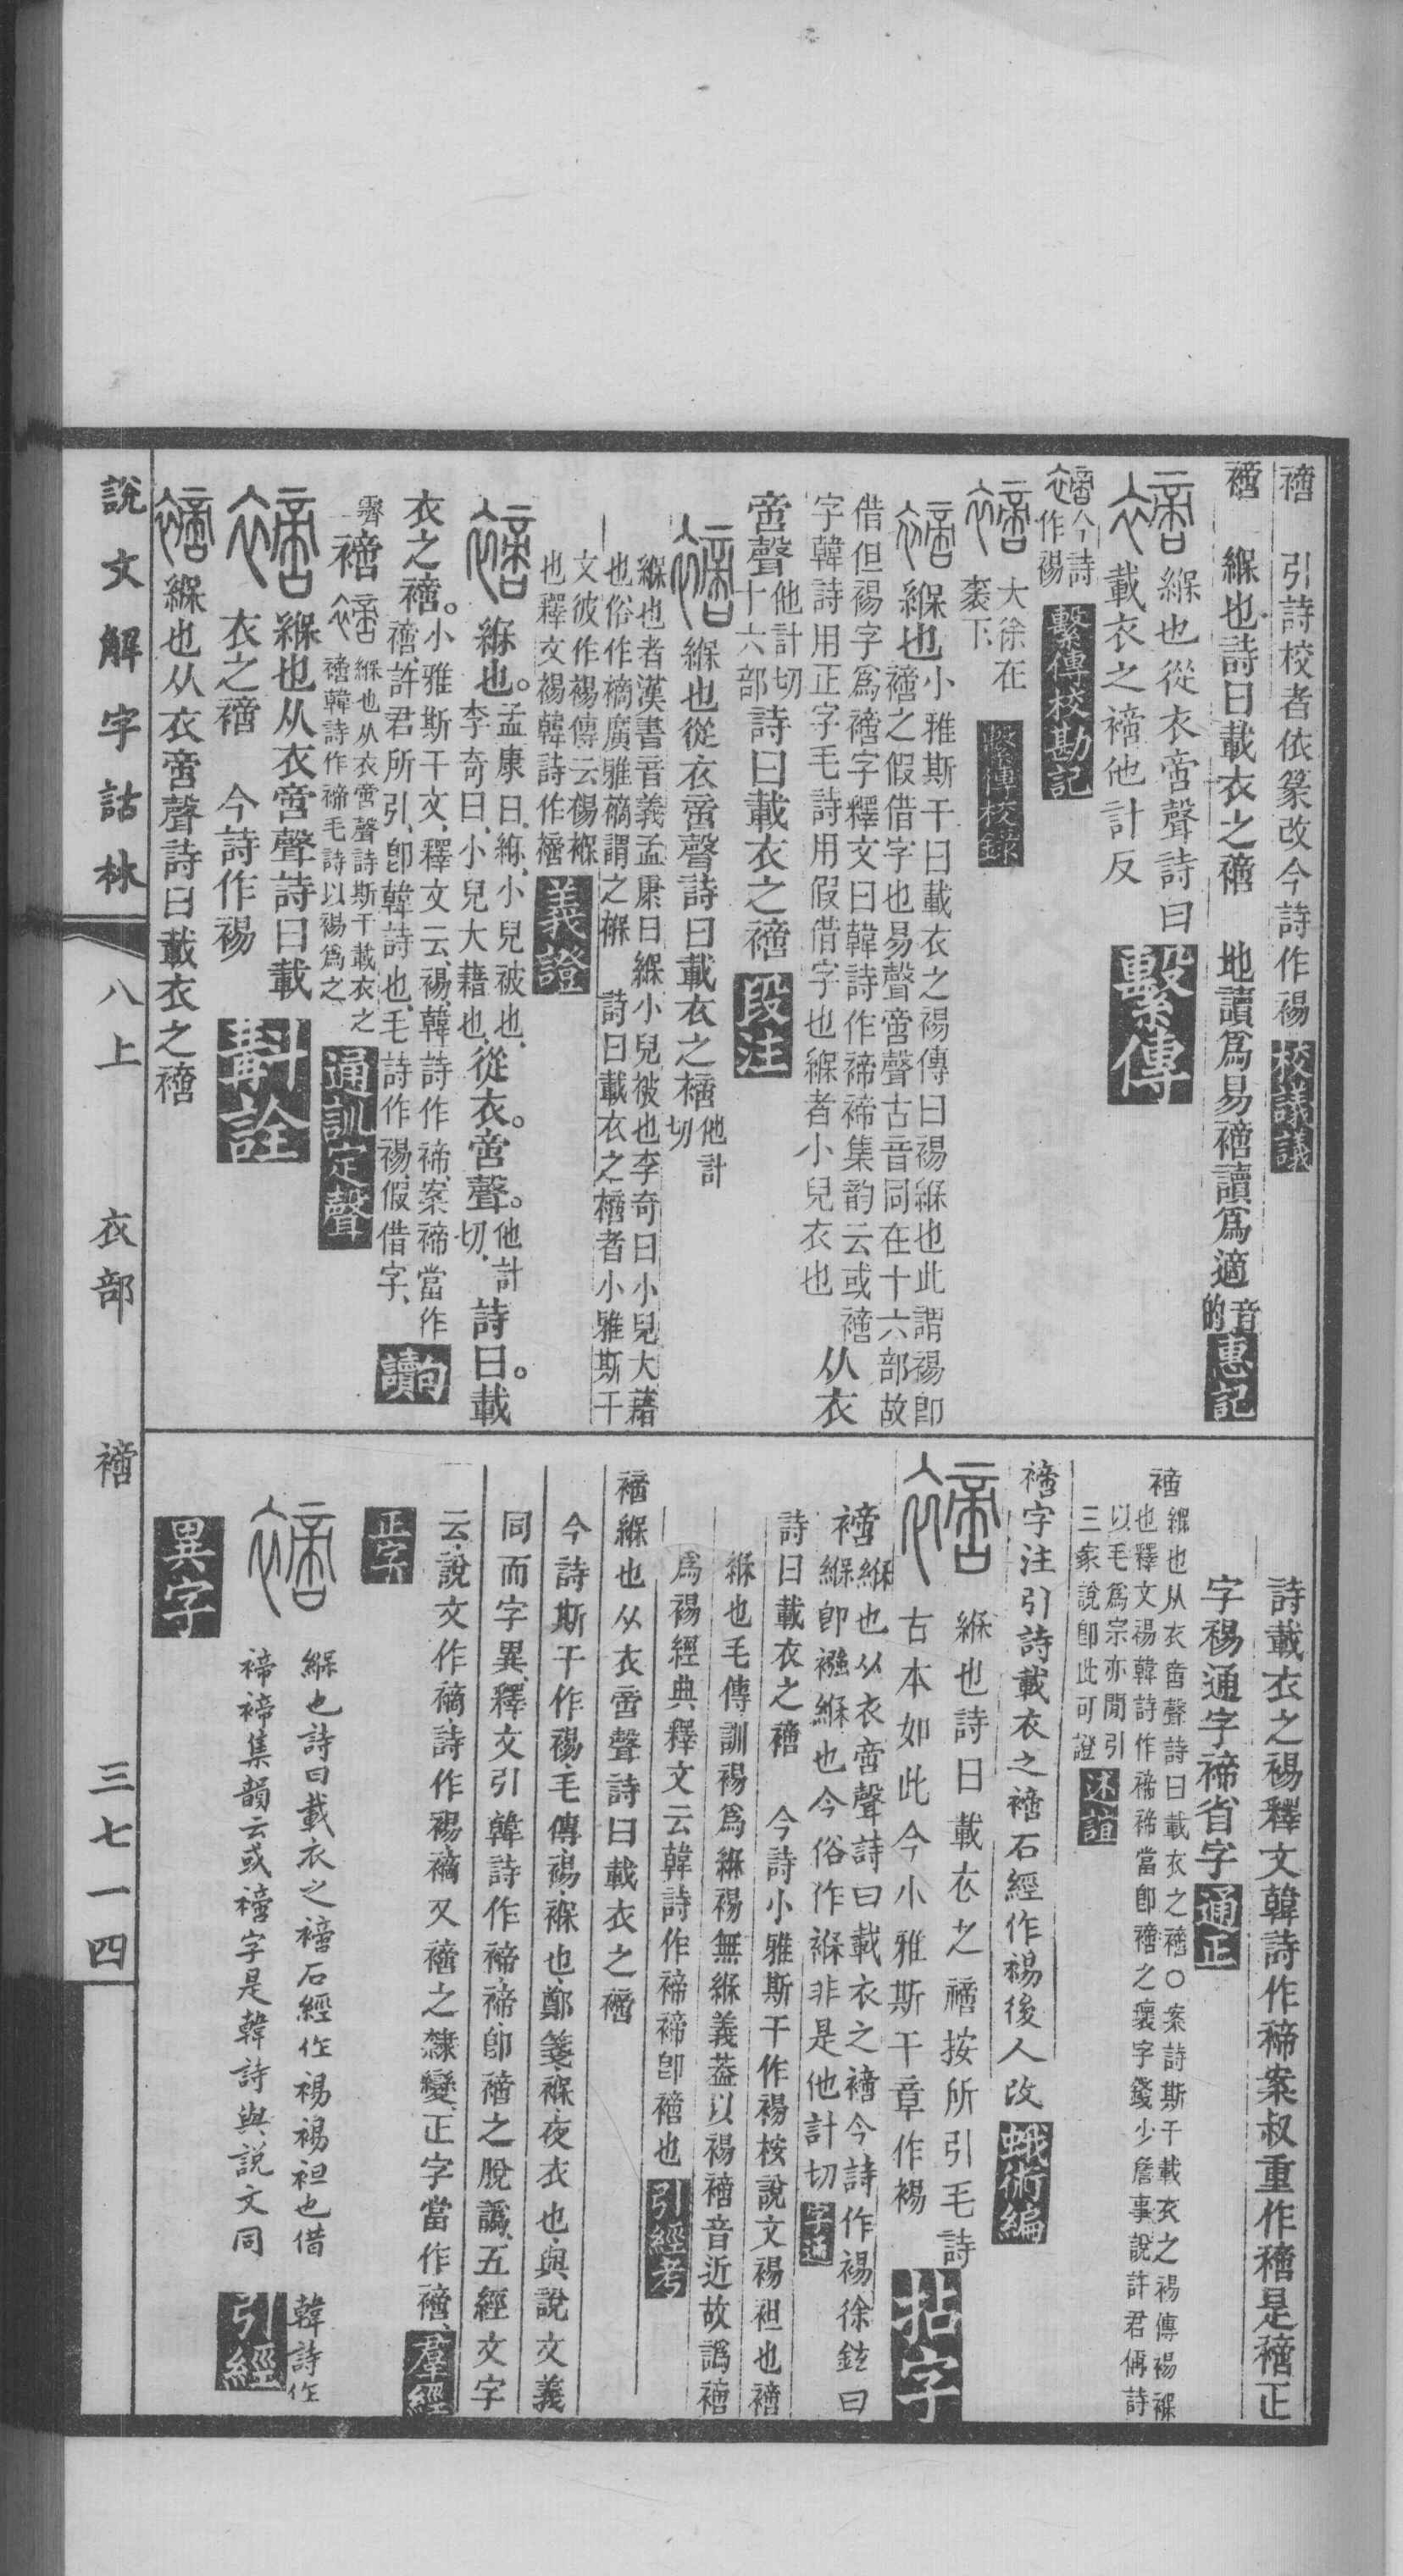 𧜂　引詩校者依篆改今詩作裼　校議議
𧜂　緥也詩曰載衣之𧜂　地讀爲易𧜂讀爲適音的　惠記
緥也從衣啻聲詩曰
載衣之禘他計反　繫傳
𧜂今詩作裼　繫傳校勘記
大徐在裘下　繫傳校錄
緥也小雅斯干曰載衣之裼傳曰裼緥也此謂裼卽
𧜂之假借字也易聲啻聲古音同在十六部故
借但裼字爲𧜂字釋文曰韓詩作禘禘集韵云或𧜂
字韓詩用正字毛詩用假借字也緥者小兒衣也　从衣
啻聲他計切十六部詩曰載衣之𧜂　段注
緥也從衣啻聲詩曰載衣之𧜂他計切
緥也者漢書音義孟康曰緥小兒被也李奇曰小兒大藉
也俗作褯廣雅褯謂之褓　詩曰載衣之𧜂者小雅斯干
文彼作裼傳云裼褓
也釋文裼韓詩作𧜂　義證
緥也。孟康曰、緥、小兒被也、李奇曰、小兒大藉也、從衣。啻聲。他計切、詩曰。載
衣之𧜂。小雅斯干文、釋文云、裼、韓詩作禘、案禘當作
𧜂、許君所引、卽韓詩也、毛詩作裼、假借字、　句讀
𧜂　緥也从衣啻聲詩斯干載衣之
𧜂韓詩作禘毛詩以裼爲之　通訓定聲
緥也从衣啻聲詩曰載
衣之𧜂　今詩作裼　斠詮
緥也从衣啻聲詩曰載衣之𧜂
詩載衣之裼釋文韓詩作禘案叔重作𧜂是𧜂正
字裼通字禘省字　通正
𧜂　緥也从衣啻聲詩曰載衣之𧜂〇案詩斯干載衣之裼傳裼褓
也釋文裼韓詩作禘禘當卽𧜂之壞字錢少詹事說許君偁詩
以毛爲宗亦閒引
三家說卽此可證　述誼
𧜂字注引詩載衣之𧜂石經作裼後人改　蛾術編
緥也詩曰載衣之𧜂按所引毛詩
古本如此今小雅斯干章作裼　拈字
𧜂　緥也从衣啻聲詩曰載衣之𧜂今詩作裼徐鉉曰
緥卽襁緥也今俗作褓非是他計切　字通
詩曰載衣之𧜂　今詩小雅斯干作裼桉說文裼袒也𧜂
緥也毛傳訓裼爲緥裼無緥義葢以裼𧜂音近故譌𧜂
爲裼經典釋文云韓詩作禘禘卽𧜂也　引經考
𧜂緥也从衣啻聲詩曰載衣之𧜂
今詩斯干作裼、毛傳、裼、褓也、鄭箋、褓、夜衣也、與說文義
同而字異、釋文引韓詩作禘、禘卽𧜂之脫譌、五經文字
云、說文作褅、詩作裼、褅又𧜂之隸變、正字當作𧜂、　羣經
正字
緥也詩曰載衣之𧜂石經作裼裼袒也借　韓詩作
禘禘集韻云或𧜂字是韓詩與說文同　引經
異字
說文解字詁林　八上　衣部　𧜂　三七一四